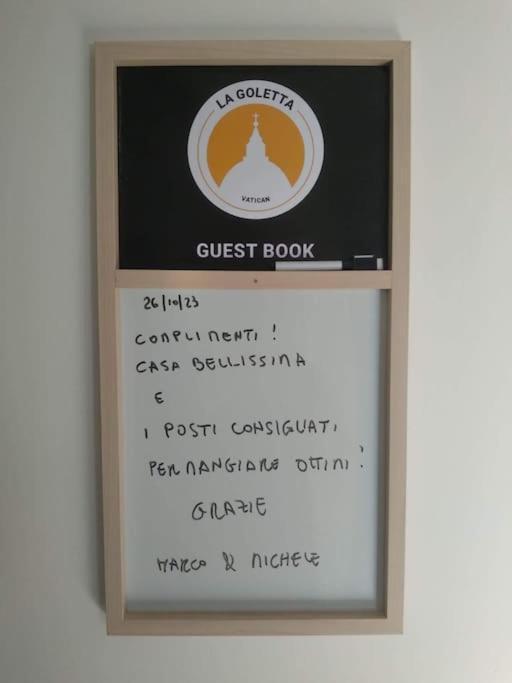 LA GOLETTA
VATICAN
GUEST BOOK
26/10/23
COMPLIMENTI!
CASA BELLISSIMA
E
I POSTI CONSIGLIATI
PER MANGIARE OTTIMI!
GRAZIE
MARCO & MICHELE